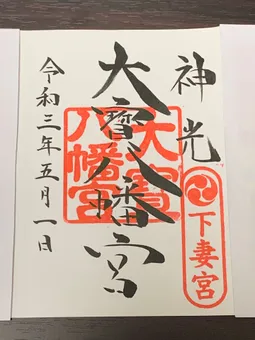 神光
下妻宮
大寶八幡宮
大寶
八幡宮
令和三年五月一日